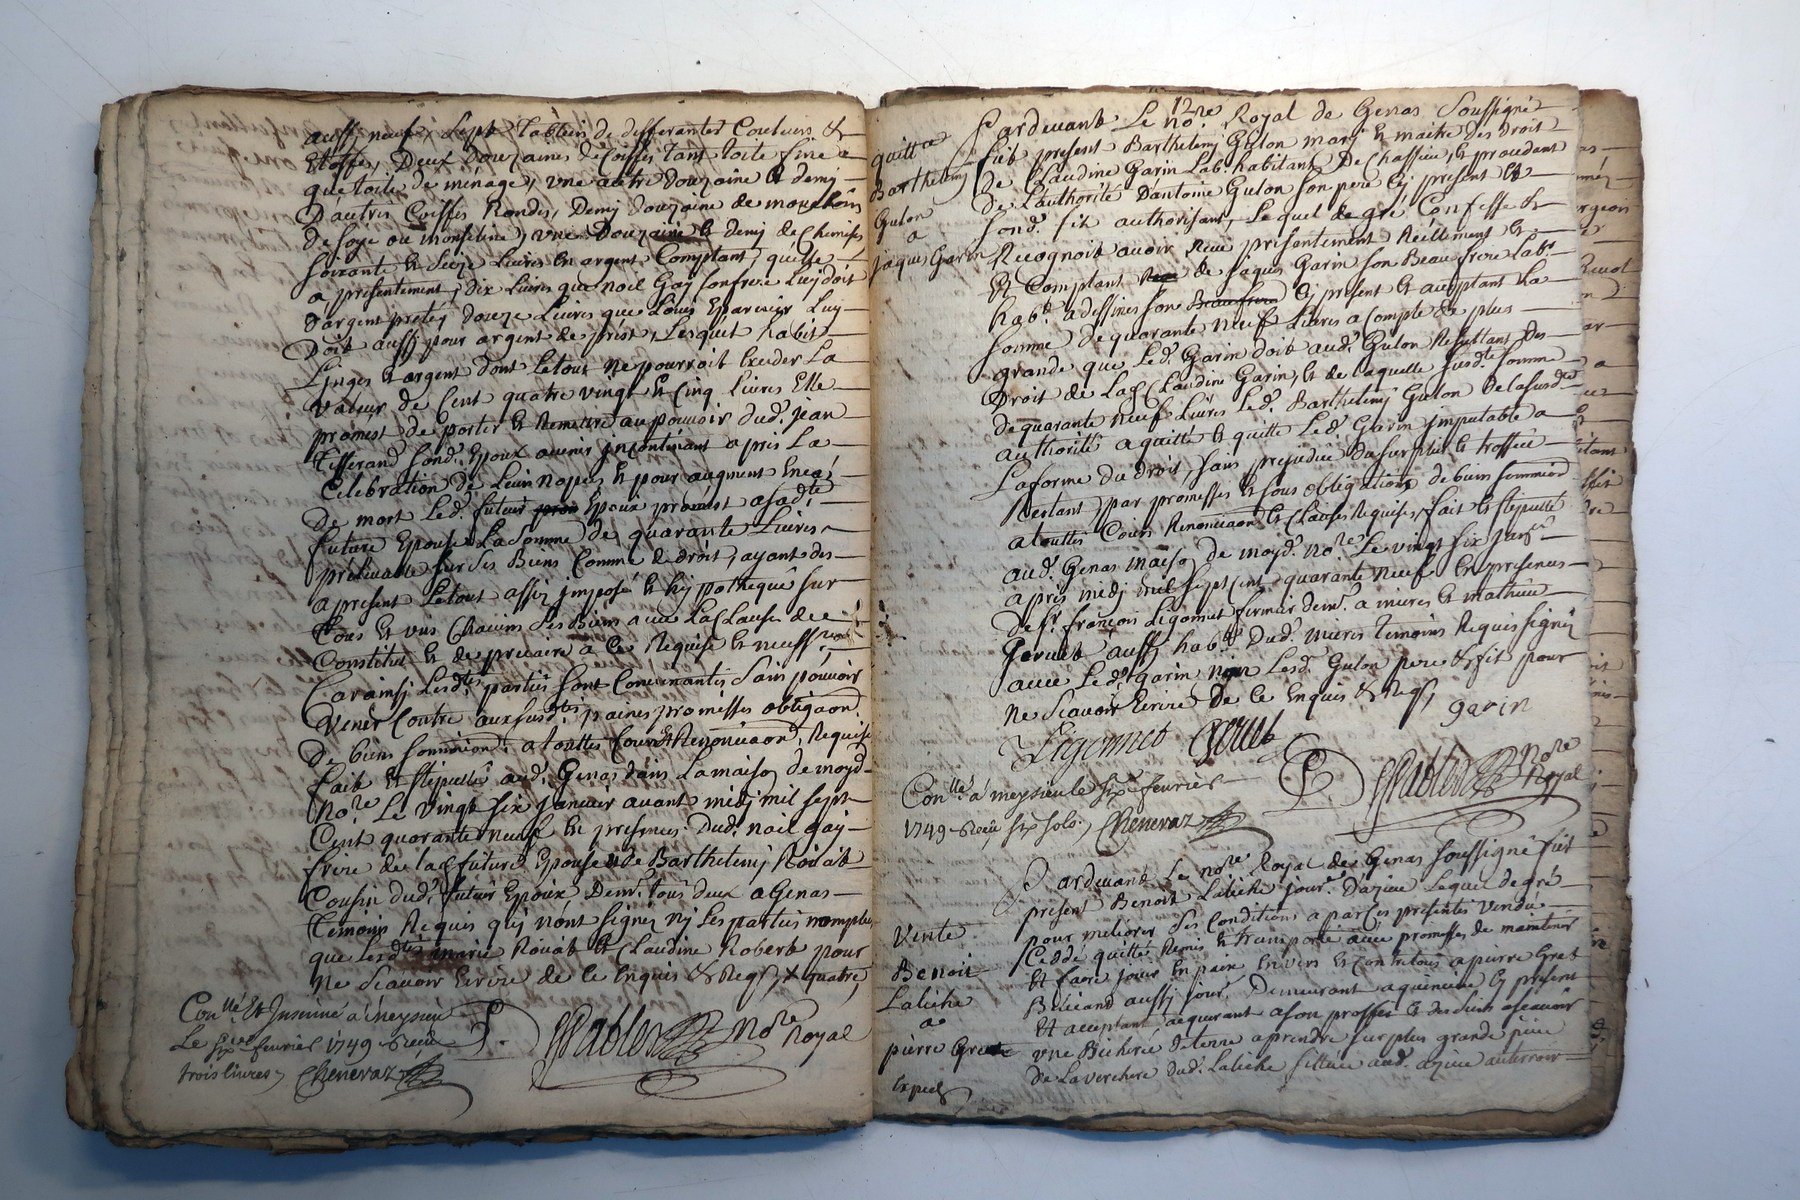 aussy neufs, sept tabliers de differantes Couleurs &
Etoffes, Deux douzaines de Coiffes tant toile fine
que toile de ménage, vne autre douzaine et demy
D'autres Coiffes Rondes, Demy douzaine de mouchoirs
de soye ou monseline, vne Douzaine et demy de Chemises
soixante et seize Livres en argent Comptant, quelle
a presentement, dix Livres que noël Gay son frere Luy doit
d'argent pretéz, douze Livres que Loüis Luy
Doit aussy pour argent de prest, Lesquels habits
Linges et argent dont Letout ne pourroit exceder La
valeur de Cent quatre vingt et Cinq Livres Elle
promest de porter et Remettre au pouvoir dud. jean
Tisserand sond. Epoux avenir jncontinant apres La
Celebration de Leurs nopces et pour augment en cas
de mort Led. futur Epoux promest a sadte
future Epouse La somme de quarante Livres
prélevable sur ses Biens Comme de droit, ayant des
apresent Letout assis jmposé et hypothequé sur
tous et vns Chacuns ses Biens avec La Clause de
Constitut et de precaire a ce Requise et necessre
Car ainsy Lesdtes parties sont Convenantes sans pouvoir
venir Contre aux susdtes paines promesses obligaon
De biens soumission a touttes Cours et Renonciaon, Requise
fait et stepullé aud. Genas dans La maison de moyd
nore Le vingt six janvier avant midy mil sept
Cent quarante neuf en presences Dud. noël gay
frere de lad. future Epouse & de Barthelemy Roüab
Cousin dud. futur Epoux Demt tous deux a Genas
temoins Requis quy n'ont signés ny Les parties non plus
que Lesdtes marie Roüab et Claudine Robert pour
ne scavoir Ecrire de ce Enquis & Reqs X quatre
Conllé et Jnsinué a meysieu
Le six fevrier 1749 Receu
trois livres, Cheneraz
P. nore Royal
12
Pardevant Le nore Royal de Genas soussigné
quittce
fut present Barthelemy Gulon mary et maitre des droits
Barthelemy
de Claudine Garin Labr habitant De Chassieu, et procedant
de L'authorité D'antoine Gulon son pere Cy present &
Gulon
sond. fils authorisant, Lequel de gré Confesse &
a
jaques Garin
Recognoit avoir Receu présentement Réellement et
et Comptant de jaques Garin son Beau frere Labr
habt a dessines Cy présent et acceptant La
somme de quarante neuf Livres a compte de plus
grande que Led. Garin doit aud. Gulon Resultant Des
Droit de Lad. Claudine Garin, et de laquelle susdte somme
de quarante neuf Livres Led. Barthelemy Gulon De la susdte
authorité a quitté et quitte Led. Garin jmputable a
La forme du droit, sans prejudice du surplus
Restant, par promesses et sous obligations de biens soumission
a touttes Cours Renonciaon et Clauses Requises, fait et stepullé
aud. Genas maison de moyd. nore Le vingt six janer
apres midy mil sept Cent quarante neuf en presences
de sr françois Ligonnet fermier demt a mieres et mathieu
Geruet aussy habt dud. mieres temoins Requis signés
avec Led. Garin non Lesd. Gulon pere & fils pour
ne scavoir Ecrire De ce Enquis & Reqs
garin
Ligonnet Geruet
P. nore Royal
Conllé a meysieu le six fevrier
1749 Receu six sols, Cheneraz
Pardevant Le nore Royal de Genas soussigné fut
present Benoit Laliche jourr Dazieu Lequel de gré
Vente
pour meliorer ses Conditions a par Ces presentes vendu
Cedde quitté Remis et transporté avec promesses de maintenir
Benoit
et faire jouir En paix Envers et contre tous a pierre Gret
Laliche
aussy jourr Demeurant Cy present
a
et acceptant acquerant a son proffit & des siens ascavoir
pierre Gret
vne Bicherée de terre a prendre sur plus grande piece
de La verchere dud. Laliche sittuée aud. azieu
Exped